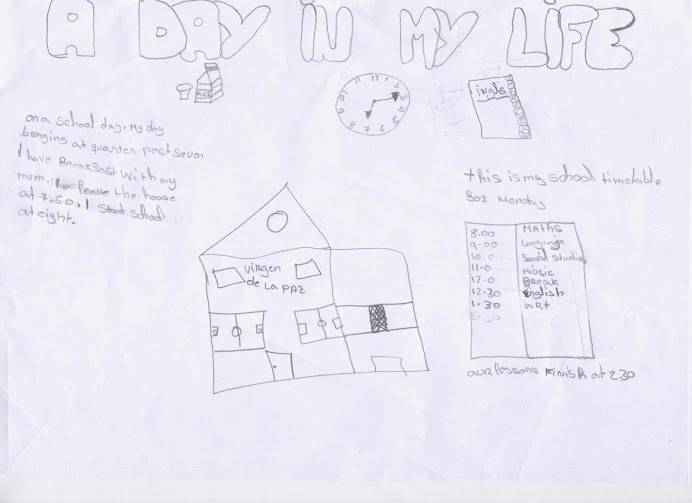 A DAY IN MY LIFE
MILK
ingls
on a school day, my day
beagins at quarter past seven
I have Breakfast with my
mum. I leave the house
at 7.50. I start school
at eight.
this is my school timetable
Monday
8.00 Maths
9.00 Language
10.0 Social Studies
11.0 Music
12.0 Break
12-30 English
1-30 art
2-30
virgen
de La PAZ
our lessons Finish at 230